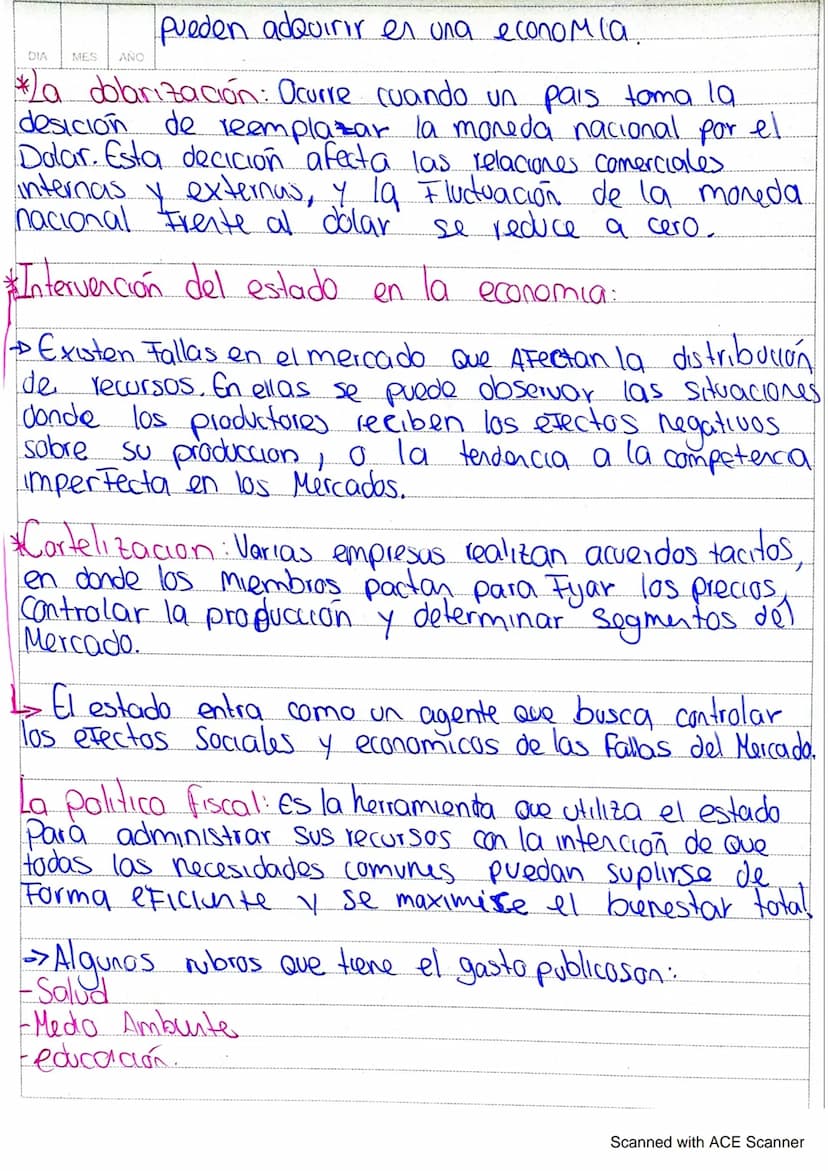 pueden adquirir en una economía.
DIA MES AÑO
*La dolarización: Ocurre cuando un pais toma la
desición de reemplazar la moneda nacional por el
Dolar. Esta decición afecta las relaciones comerciales
internas y externas, y la Fluctuación de la moneda
nacional Frente al dolar se reduce a cero.
*Intervención del estado en la economia:
→ Existen Fallas en el mercado que AFectan la distribución
de recursos. En ellas se puede observar las situaciones
donde los productores reciben los eFectos negativos
sobre su produccion, o la tendencia a la competenca
imperFecta en los Mercados.
*Cartelizacion: Varias empresas realizan acuerdos tacitos,
en donde los miembros pactan para Fijar los precios,
controlar la producción y determinar segmentos del
Mercado.
↳ El estado entra como un agente que busca controlar
los eFectos Sociales y economicos de las fallas del Mercado.
La politica fiscal: Es la herramienta que utiliza el estado
Para administrar sus recursos con la intención de que
todas las necesidades comunes puedan suplirse de
Forma eFiciente y se maximice el bienestar total.
→ Algunos rubros que tiene el gasto publico son:
-Salud
-Medio Ambiente
-educación.
Scanned with ACE Scanner